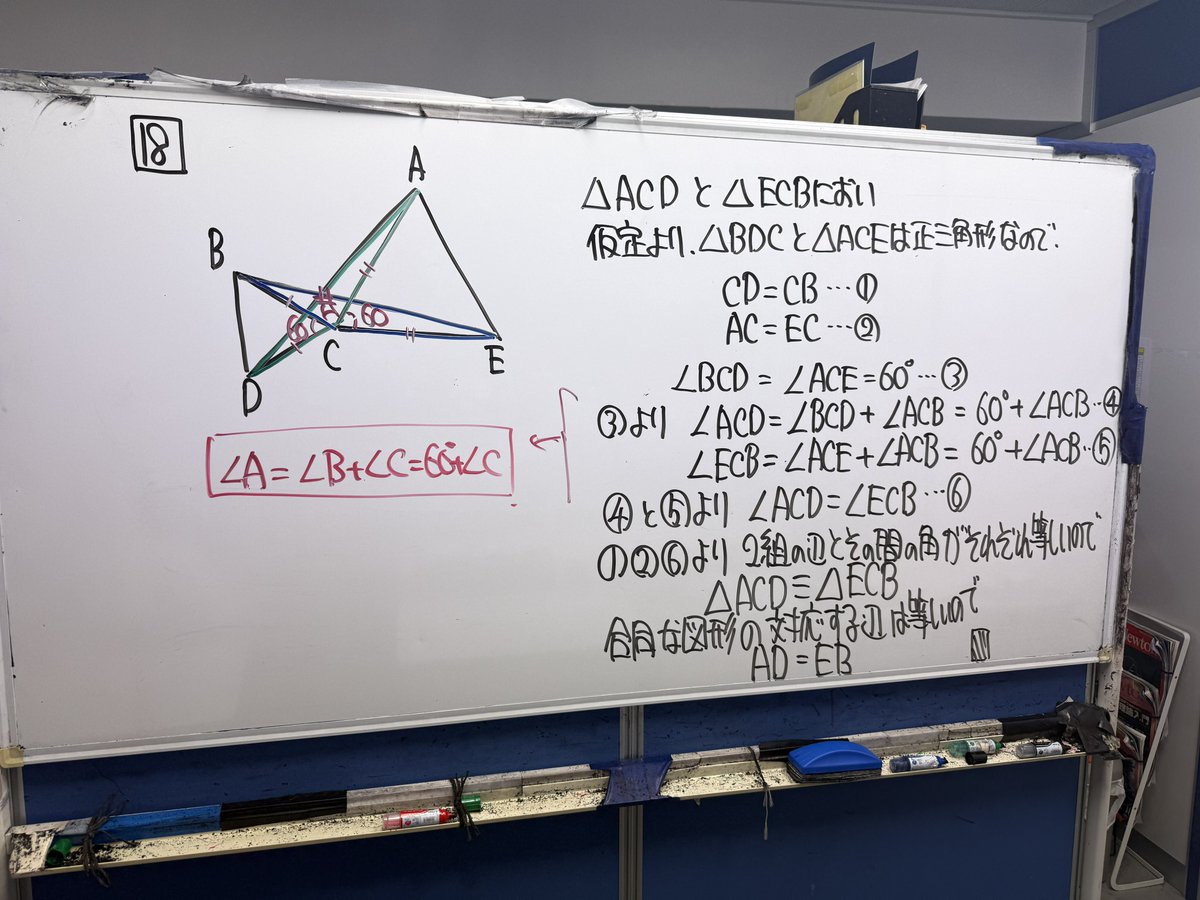 18
A
B
60
60
C
E
D
∠A=∠B+∠C=60°+∠C
△ACDと△ECBにおい
仮定より、△BDCと△ACEは正三角形なので、
CD=CB…①
AC=EC…②
∠BCD=∠ACE=60°…③
③より ∠ACD=∠BCD+∠ACB=60°+∠ACB…④
∠ECB=∠ACE+∠ACB=60°+∠ACB…⑤
④と⑤より ∠ACD=∠ECB…⑥
①②⑥より 2組の辺とその間の角がそれぞれ等しいので
△ACD≡△ECB
合同な図形の対応する辺は等しいので
AD=EB
Newto